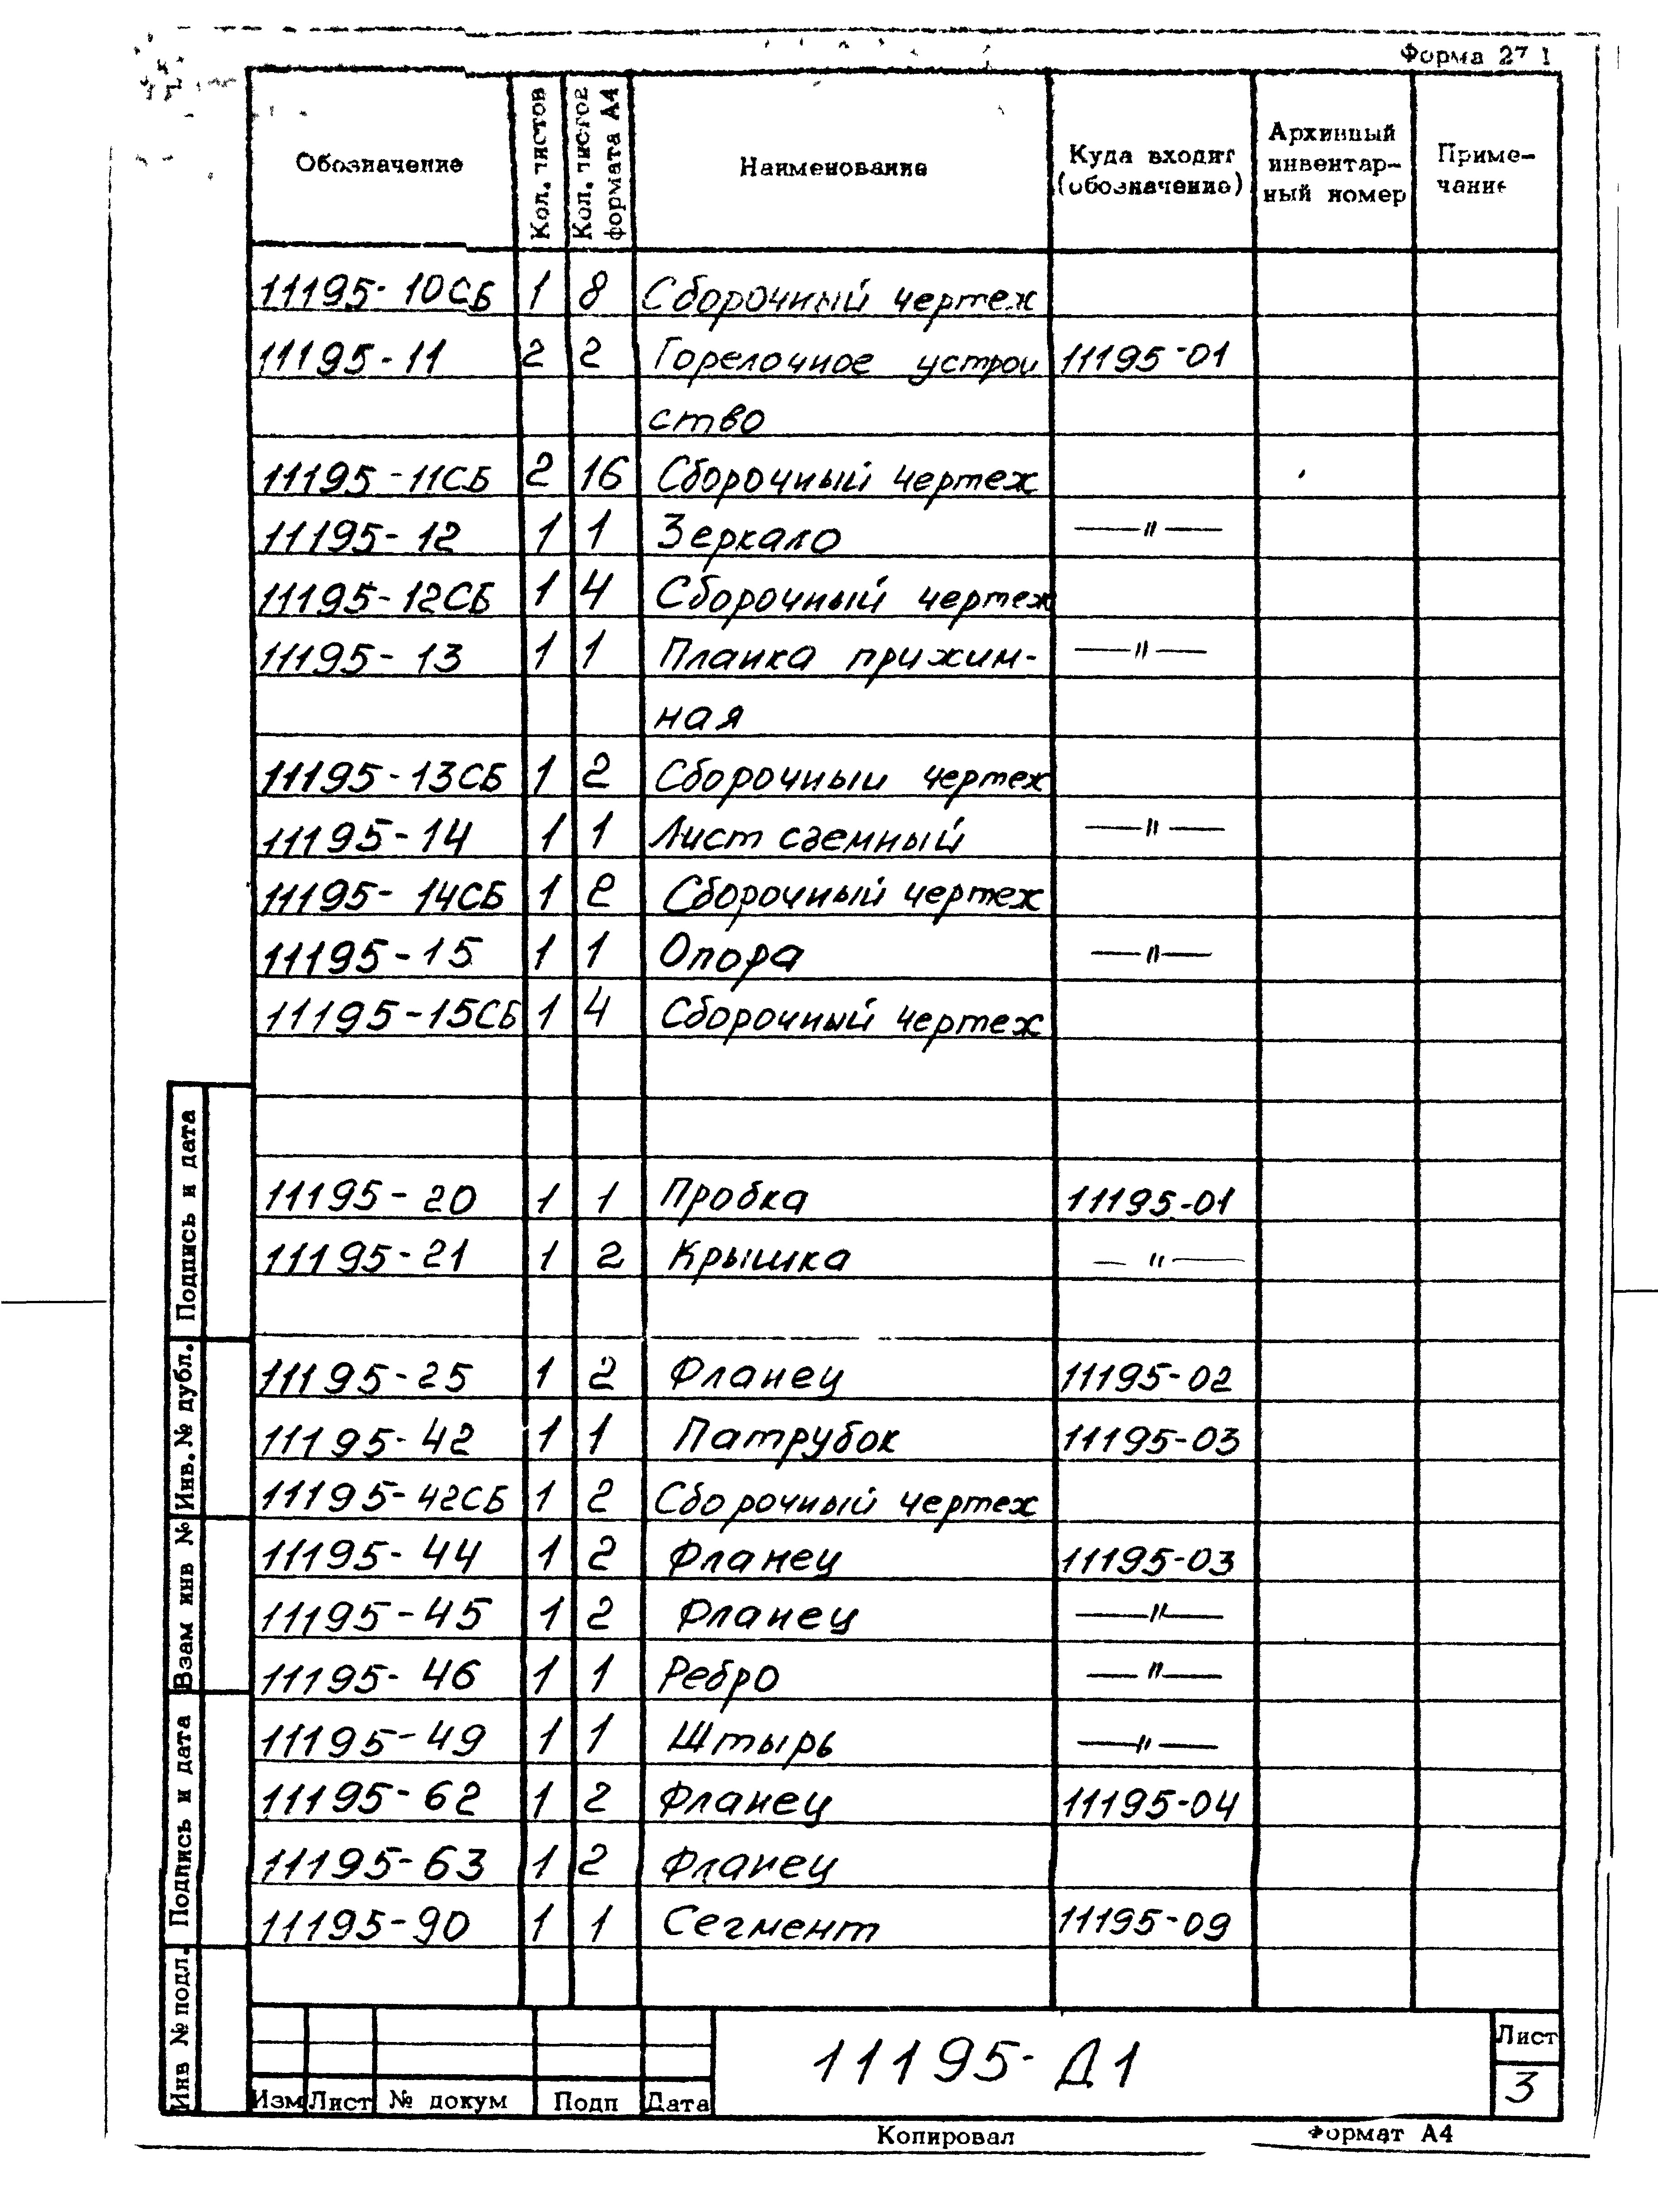 Форма 27 1
Обозначение Кол. листов Кол. листов формата А4 Наименование Куда входит (обозначение) Архивный инвентар-ный номер Приме-чание
11195-10СБ 1 8 Сборочный чертеж
11195-11 2 2 Горелочное устрои 11195-01
ство
11195-11СБ 2 16 Сборочный чертеж
11195-12 1 1 Зеркало —"—
11195-12СБ 1 4 Сборочный чертеж
11195-13 1 1 Планка прижим- —"—
ная
11195-13СБ 1 2 Сборочный чертеж
11195-14 1 1 Лист съемный —"—
11195-14СБ 1 2 Сборочный чертеж
11195-15 1 1 Опора —"—
11195-15СБ 1 4 Сборочный чертеж
11195-20 1 1 Пробка 11195-01
11195-21 1 2 Крышка —"—
11195-25 1 2 Фланец 11195-02
11195-42 1 1 Патрубок 11195-03
11195-42СБ 1 2 Сборочный чертеж
11195-44 1 2 Фланец 11195-03
11195-45 1 2 Фланец —"—
11195-46 1 1 Ребро —"—
11195-49 1 1 Штырь —"—
11195-62 1 2 Фланец 11195-04
11195-63 1 2 Фланец
11195-90 1 1 Сегмент 11195-09
Подпись и дата
Инв. № дубл.
Взам инв №
Подпись и дата
Инв № подл.
Изм Лист № докум Подп Дата
11195-Д1
Лист
3
Копировал Формат А4